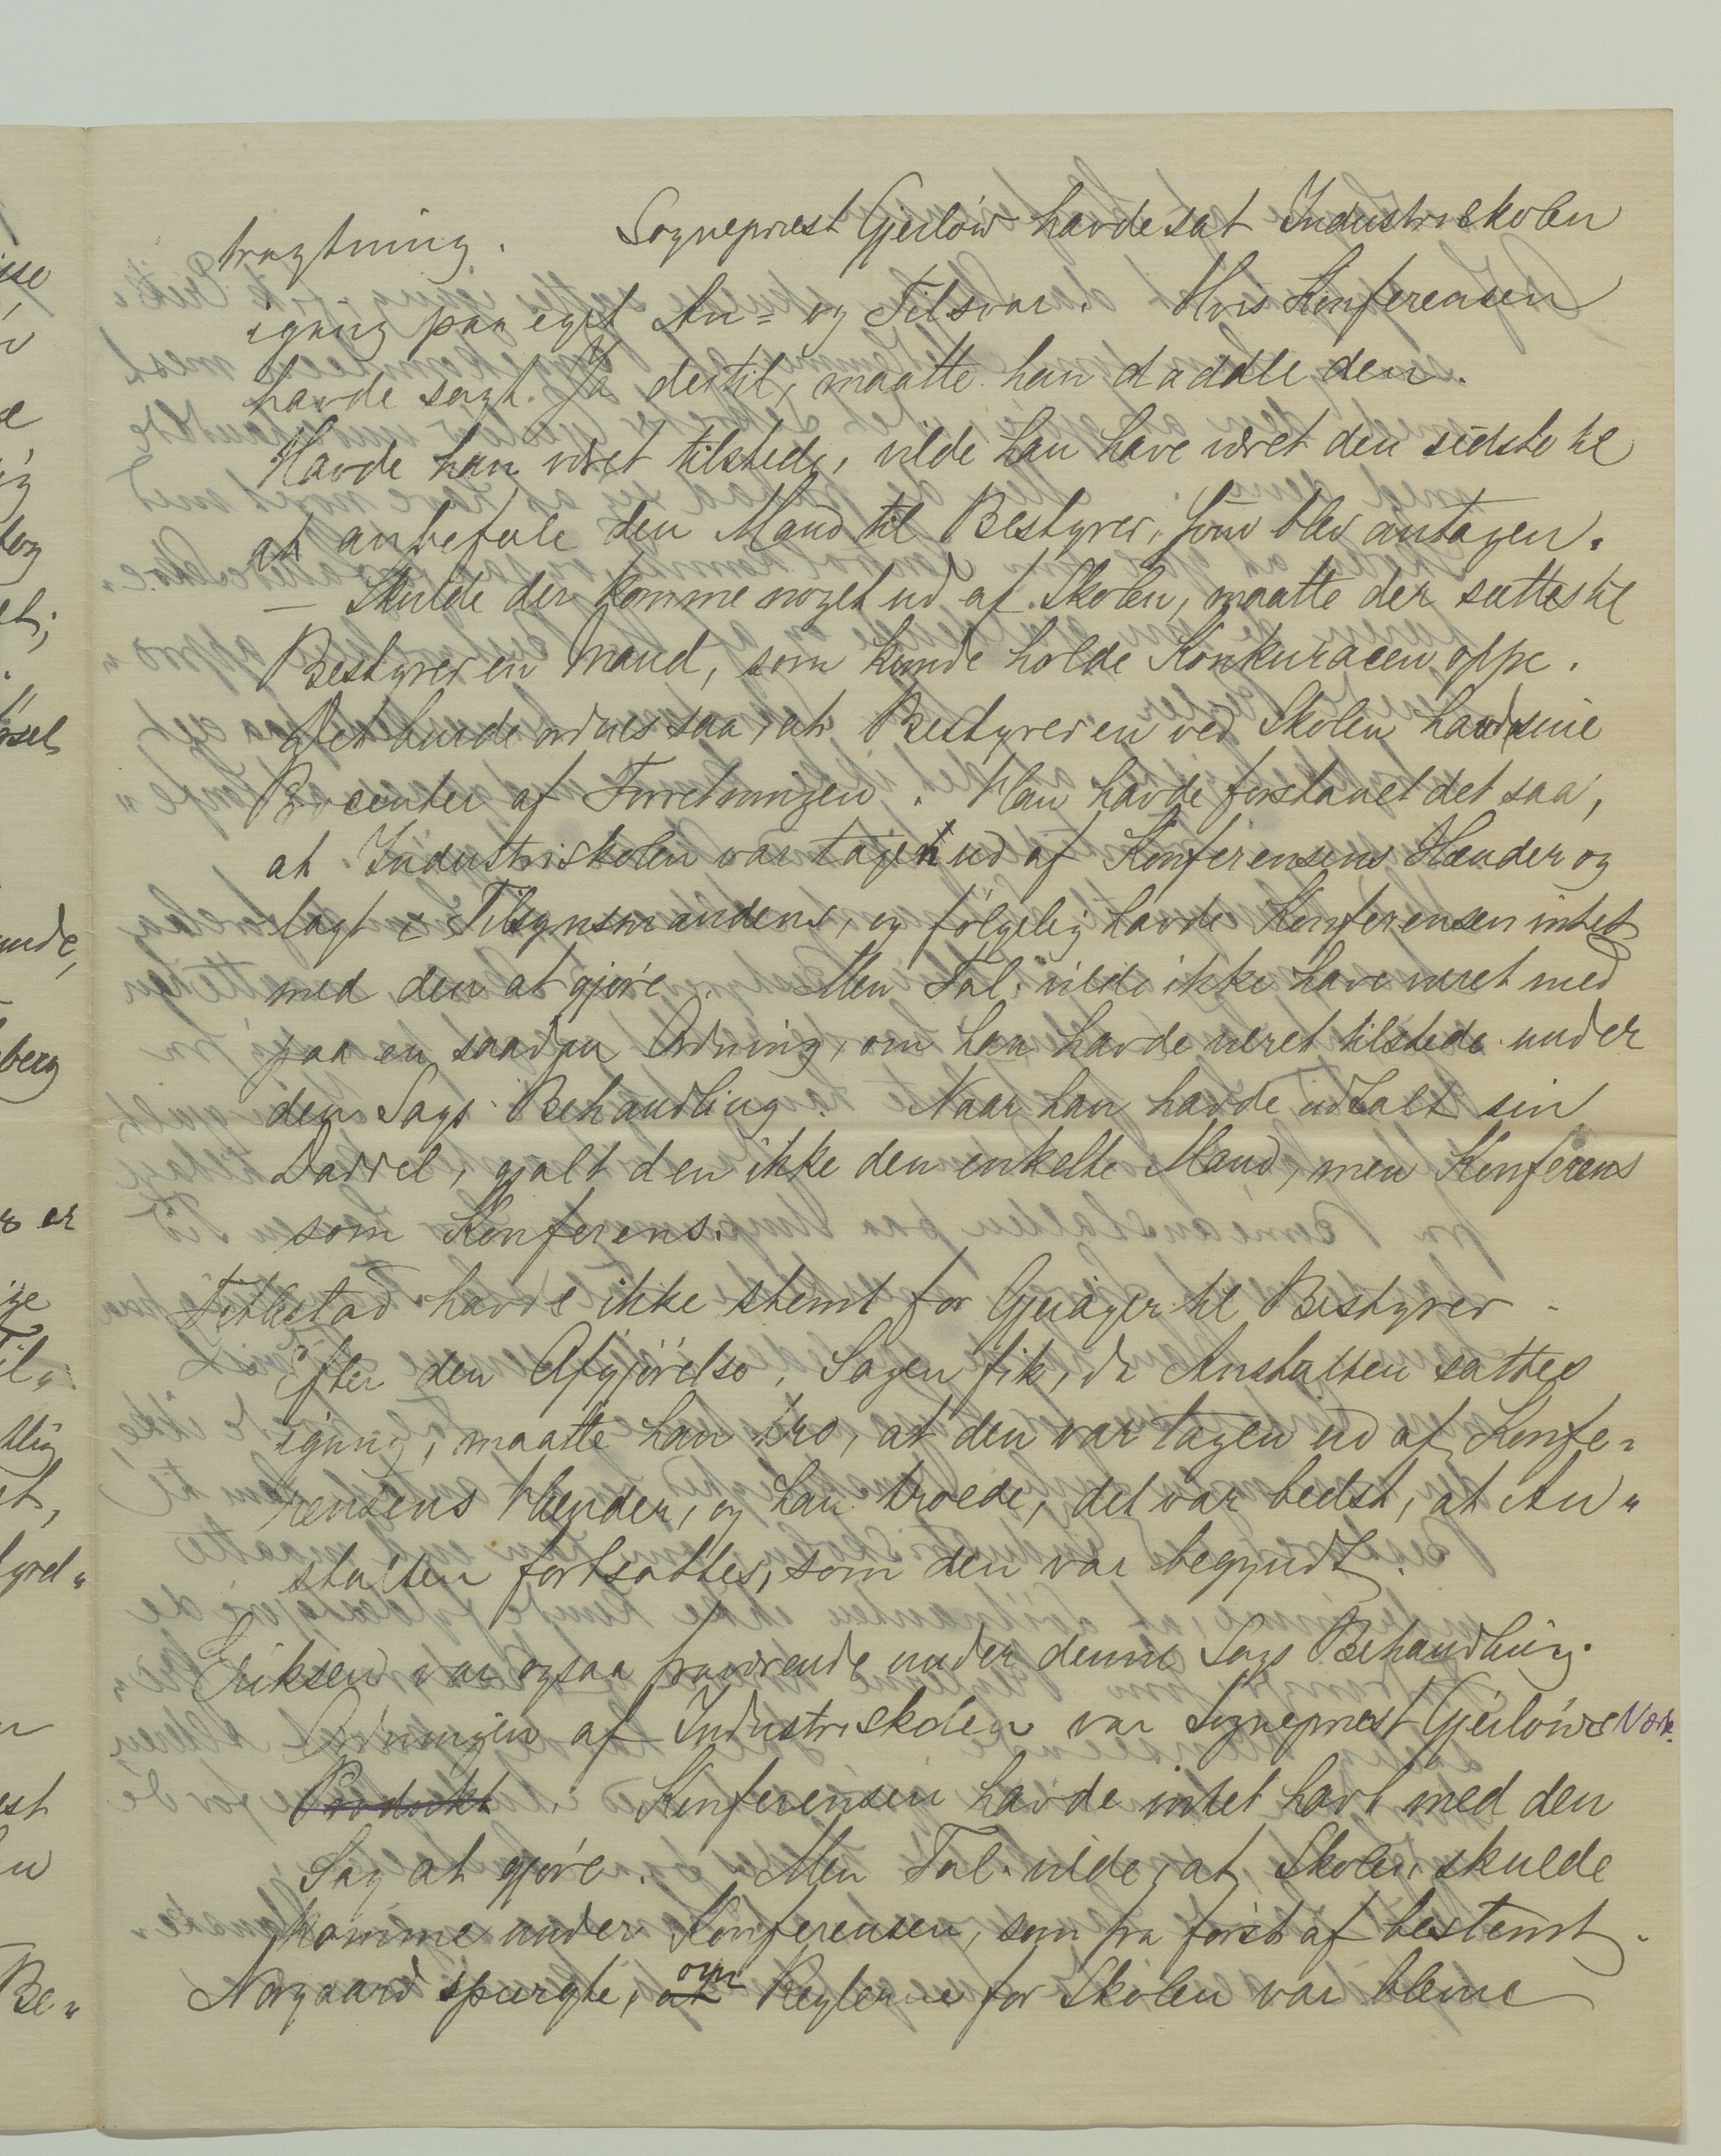 tragtning. Sogneprest Gjerløw havde sat Industriskolen
igang paa eget An= og Tilsvar. Hvis Konferensen
havde sagt Ja dertil, maatte han daddle den.
Havde han været tilstede, vilde han have været den sidste til
at anbefale den Mand til Bestyrer, som blev antagen.
— Skulde der komme noget ud af Skolen, maatte der sættes til
Bestyrer en Mand, som kunde holde Konkuracen oppe.
Det burde ordnes saa, at Bestyreren ved Skolen havde sine
Procenter af Forretningen. Han havde forstaaet det saa,
at Industriskolen var tagen ud af Konferensens Hænder og
lagt i Tilsynsmandens, og følgelig havde Konferensen intet
med den at gjøre. Men Tal. vilde ikke have været med
paa en saadan Ordning, om han havde været tilstede under
den Sags Behandling. Naar han havde udtalt sin
Daddel, gjalt den ikke den enkelte Mand, men Konferens
som Konferens.
havde ikke stemt for Gjeräger til Bestyrer.
Efter den Afgjørelse, Sagen fik, da Anstalten sattes
igang, maatte han tro, at den var tagen ud af Konfe=
rensens Hænder, og han troede, det var bedst, at An„
stalten fortsattes, som den var begyndt.
Eriksen var ogsaa fraværende under denne Sags Behandling.
Ordningen af Industriskolen var Sogneprest Gjerløws Værk.
Produkt. Konferensen havde intet havt med den
Sag at gjøre. Men Tal. vilde, at Skolen skulde
komme under Konferensen, som fra først af bestemt.
Norgaard spurgte, at om Reglerne for Skolen var blevne
nde,
berg
er
et,
est
Be„